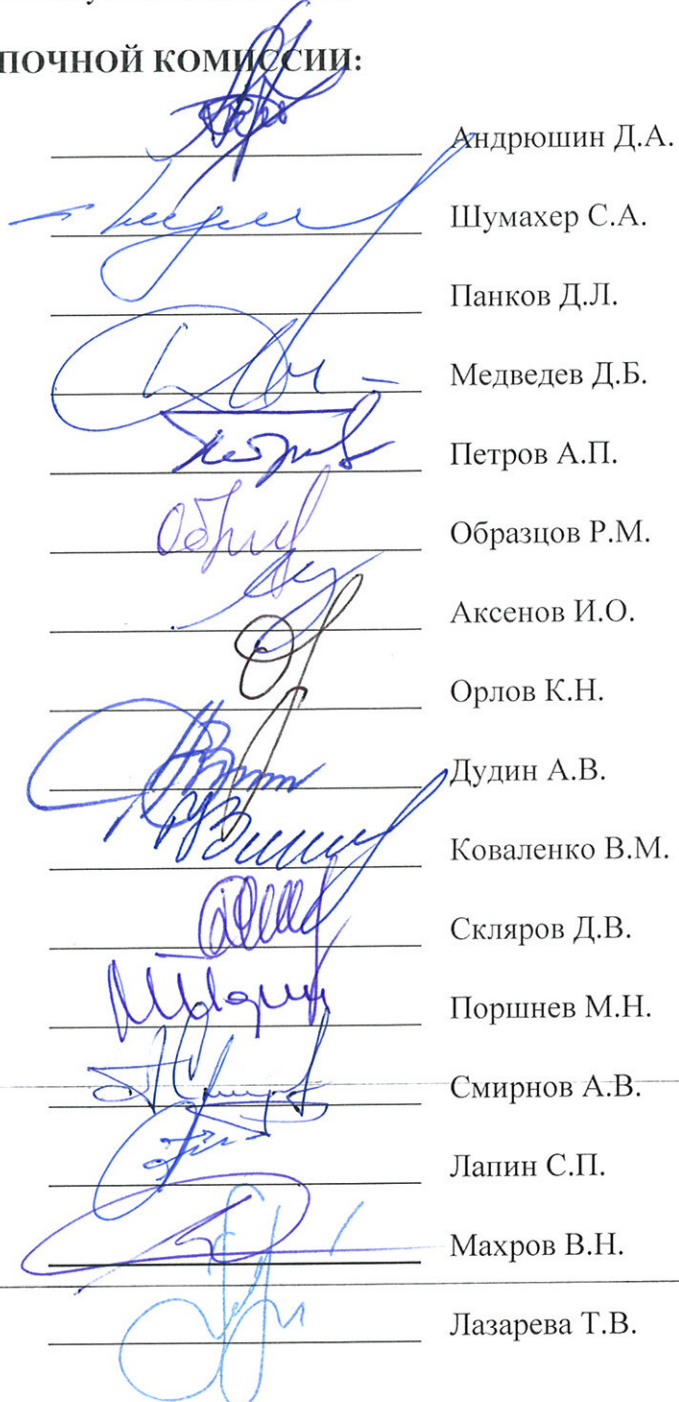 ПОЧНОЙ КОМИССИИ:
Андрюшин Д.А.
Шумахер С.А.
Панков Д.Л.
Медведев Д.Б.
Петров А.П.
Образцов Р.М.
Аксенов И.О.
Орлов К.Н.
Дудин А.В.
Коваленко В.М.
Скляров Д.В.
Поршнев М.Н.
Смирнов А.В.
Лапин С.П.
Махров В.Н.
Лазарева Т.В.